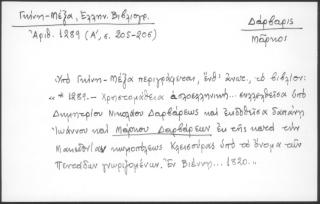 Γκίνη-Μέξα, Ἑλλην. Βιβλιογρ.
Ἀριθ. 1289 (Α', σ. 205-206)
Δάρβαρις
Μᾶρκος
Ὑπὸ Γκίνη-Μέξα περιγράφεται, ἔνθ' ἀνωτ., τὸ βιβλίον:
«* 1289. - Χρηστομάθεια ἁπλοελληνική... συλλεχθεῖσα ὑπὸ
Δημητρίου Νικολάου Δαρβάρεως καὶ ἐκδοθεῖσα δαπάνῃ
Ἰωάννου καὶ Μάρκου Δαρβάρεων ἐκ τῆς κατὰ τὴν
Μακεδονίαν κωμοπόλεως Κλεισούρας ὑπὸ τὸ ὄνομα τῶν
γνωριζομένων. Ἐν Βιέννῃ... 1820...»